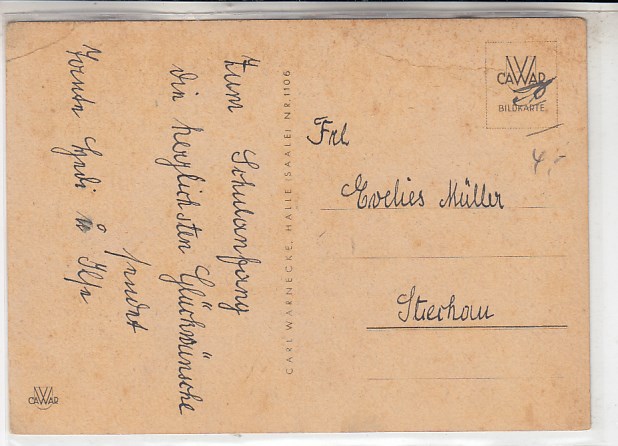 Zum Schulanfang
die herzlichsten Glückwünsche
sendet
CARL WARNECKE, HALLE (SAALE) NR. 1106
CAWAR
BILDKARTE
4,-
Frl
Evelies Müller
Stechau
CAWAR